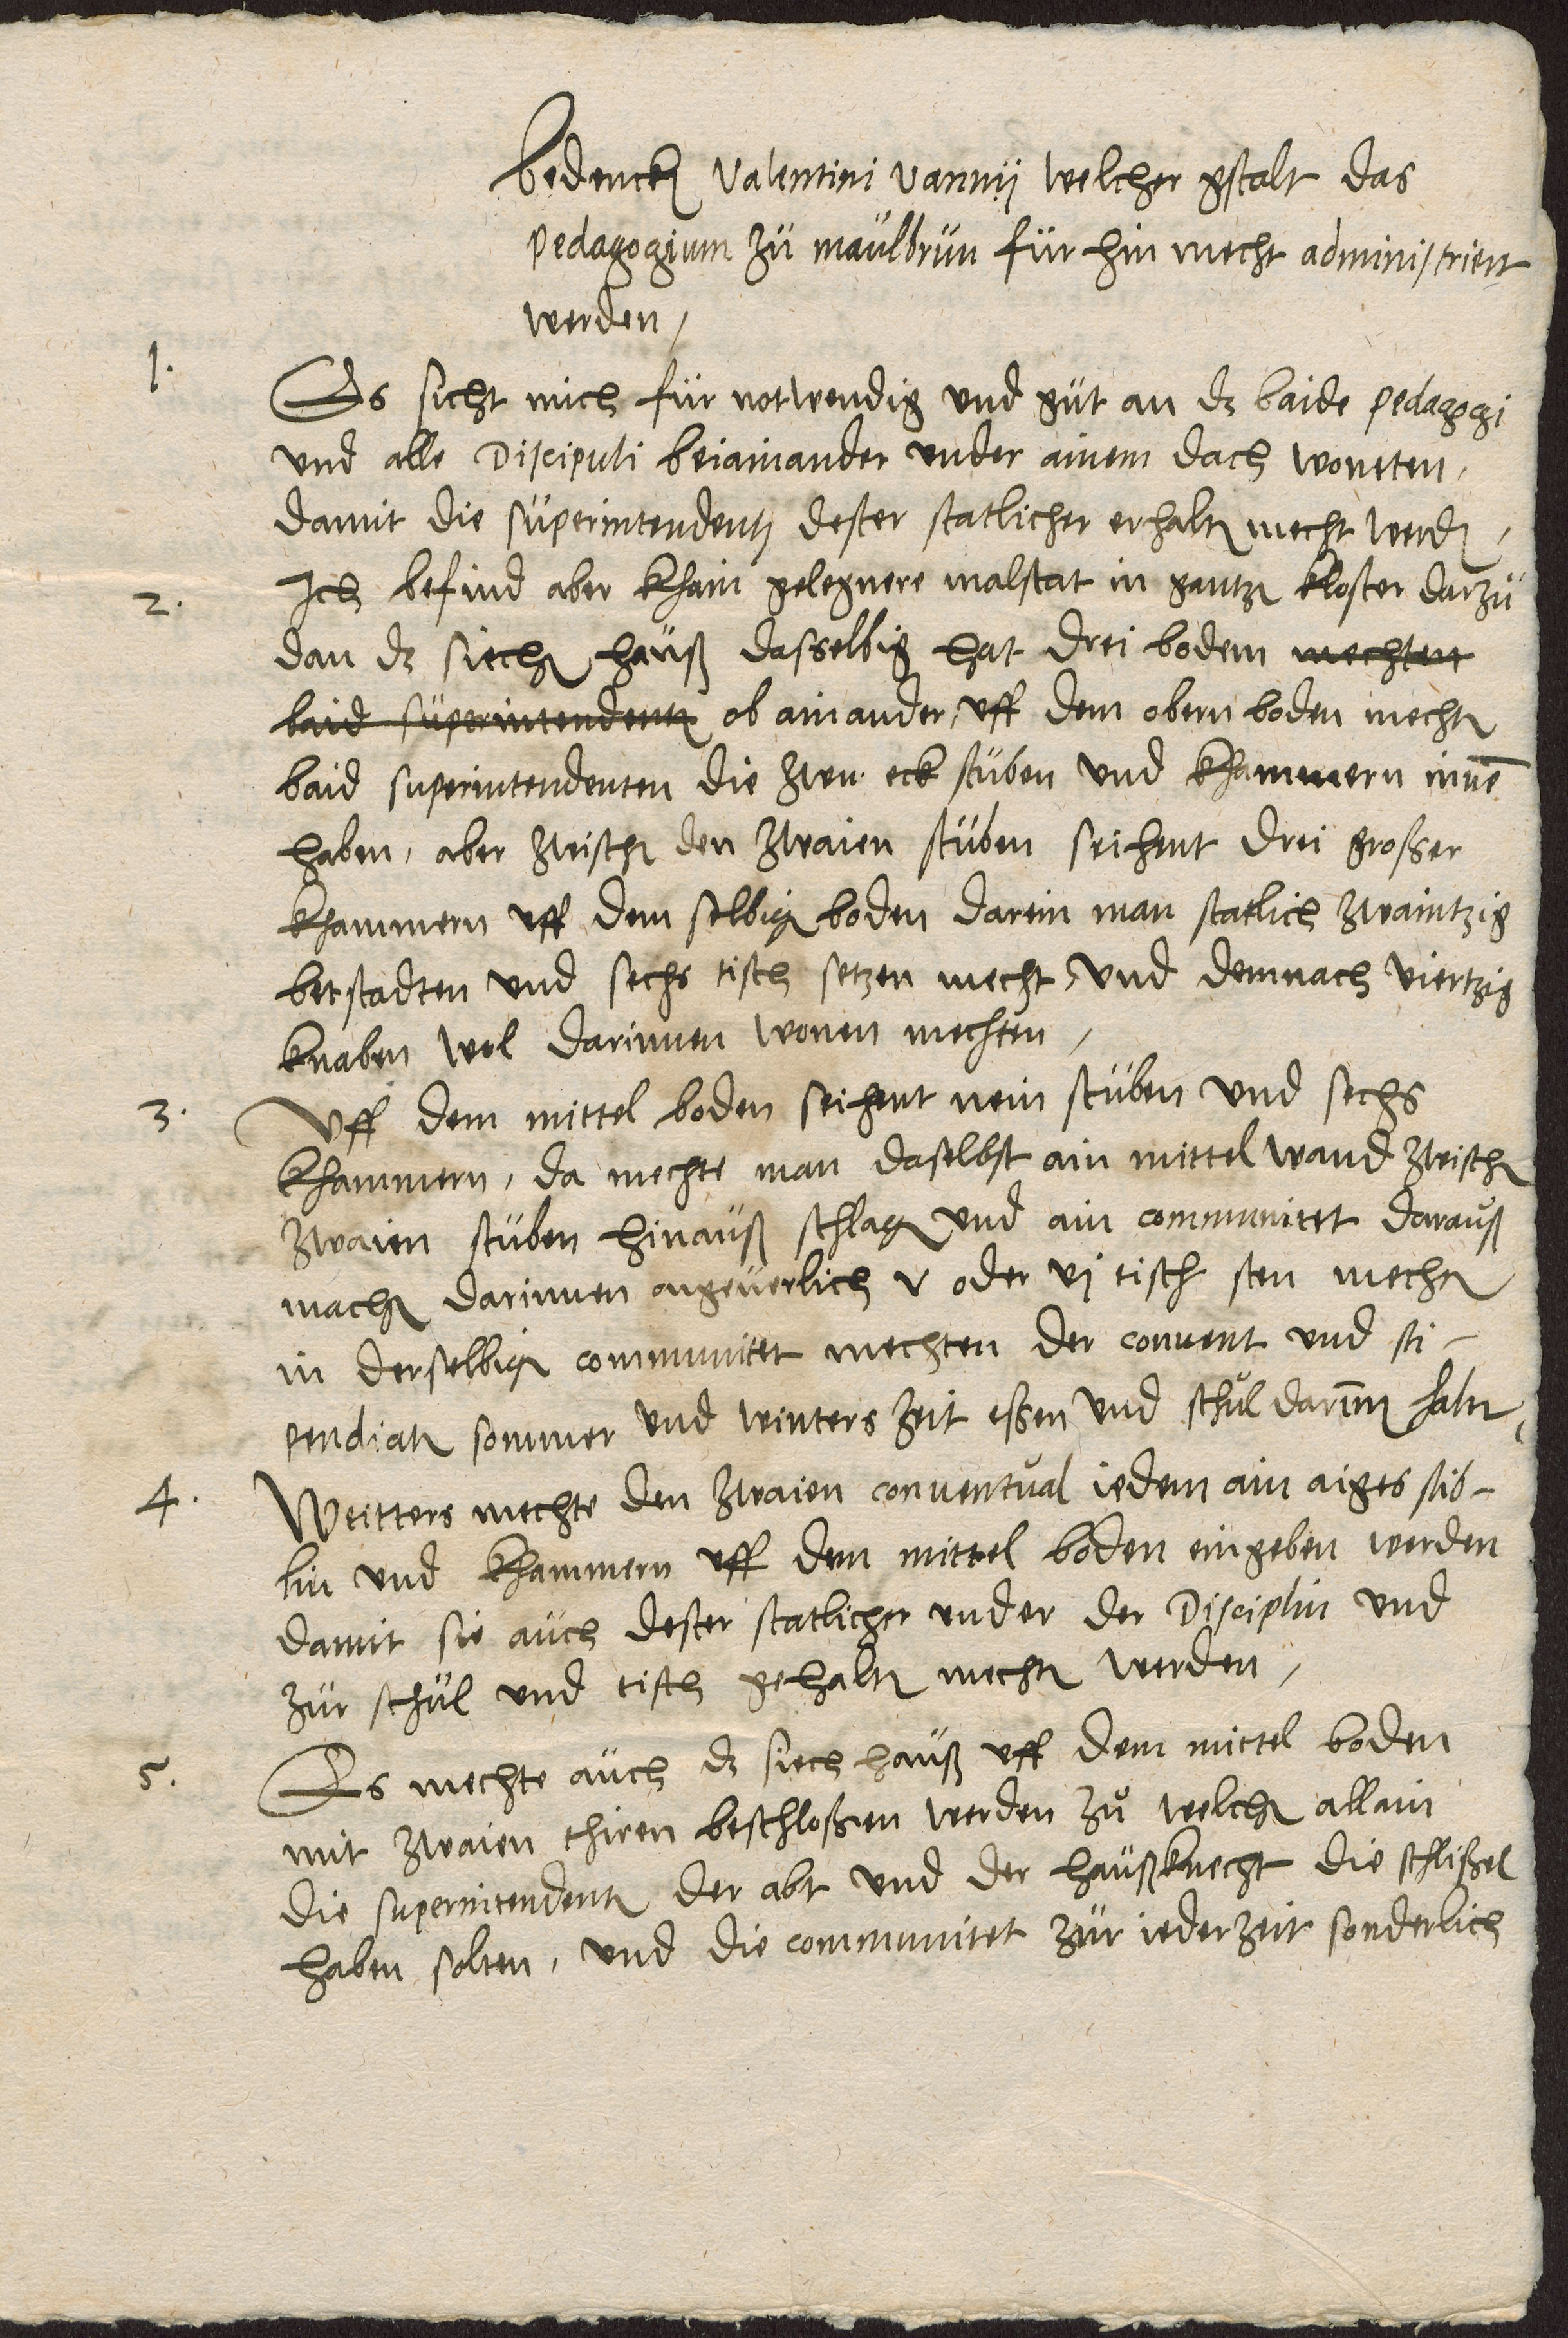 Bedencken Valentini Vannij welcher gstalt das
Pedagogium zü maülbrün für hin mecht administriert
werden /
1. Es sicht mich für notwendig und güt an dz baide pedagogi
und alle Discipuli beiainander under ainem dach woneten,
damit die süperintendentz dester statlicher erhalten mecht werden /
2. Ich befind aber khain gelegnere malstat in gantzen kloster darzü
dan dz siechen haüß dasselbig hat drei bodem mechten
baid süperintendenten ob ainander, uff dem obern boden mechten
baid superintendenten die zwen eck stüben und khammern innē
haben, aber zwischen den zwaien stüben seihent drei großer
khammern uff dem selbigen boden darein man statlich zwaintzig
betstadten und sechs tisch setzen mecht, und demnach viertzig
knaben wol darinnen wonen mechten /
3. Uff dem mittel boden seihent nein stüben und sechs
khammern, da mechte man daselbst ain mittel wand zwischen
zwaien stüben hinaüß schlagen und ain communitet daraüß
machen darinnen ongeüerlich v oder vj tisch sten mechten
in derselbigen communitet mechten der convent und sti-
pendiaten sommer und winters zeit eßen und schül darinnen halten,
4. Weitters mechte den zwaien conventüal iedem ain aiges stib-
lin und khammern uff dem mittel boden eingeben werden
damit sie aüch dester statlicher under der Disciplin und
zür schül und tisch gehalten mechten werden /
5. Es mechte aüch dz siech haüß uff dem mittel boden
mit zwaien thiren beschloßen werden zü welchen allain
die superintendenten der abt und der haüßknecht die schlißel
haben solten, und die communitet zür ieder zeit sonderlich